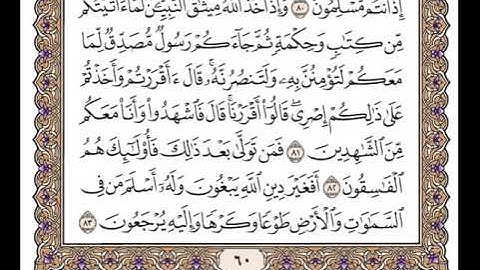 إِذْ أَنتُم مُّسْلِمُونَ ٨٠ وَإِذْ أَخَذَ ٱللَّهُ مِيثَٰقَ ٱلنَّبِيِّـۧنَ لَمَآ ءَاتَيْتُكُم
مِّن كِتَٰبٍ وَحِكْمَةٍ ثُمَّ جَآءَكُمْ رَسُولٌ مُّصَدِّقٌ لِّمَا
مَعَكُمْ لَتُؤْمِنُنَّ بِهِۦ وَلَتَنصُرُنَّهُۥۚ قَالَ ءَأَقْرَرْتُمْ وَأَخَذْتُمْ
عَلَىٰ ذَٰلِكُمْ إِصْرِيۖ قَالُوٓا۟ أَقْرَرْنَاۚ قَالَ فَٱشْهَدُوا۟ وَأَنَا۠ مَعَكُم
مِّنَ ٱلشَّٰهِدِينَ ٨١ فَمَن تَوَلَّىٰ بَعْدَ ذَٰلِكَ فَأُو۟لَٰٓئِكَ هُمُ
ٱلْفَٰسِقُونَ ٨٢ أَفَغَيْرَ دِينِ ٱللَّهِ يَبْغُونَ وَلَهُۥٓ أَسْلَمَ مَن فِى
ٱلسَّمَٰوَٰتِ وَٱلْأَرْضِ طَوْعًا وَكَرْهًا وَإِلَيْهِ يُرْجَعُونَ ٨٣
٦٠